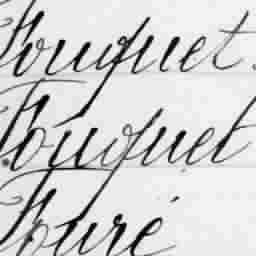 Fouquet.
Fouquet
Fouré